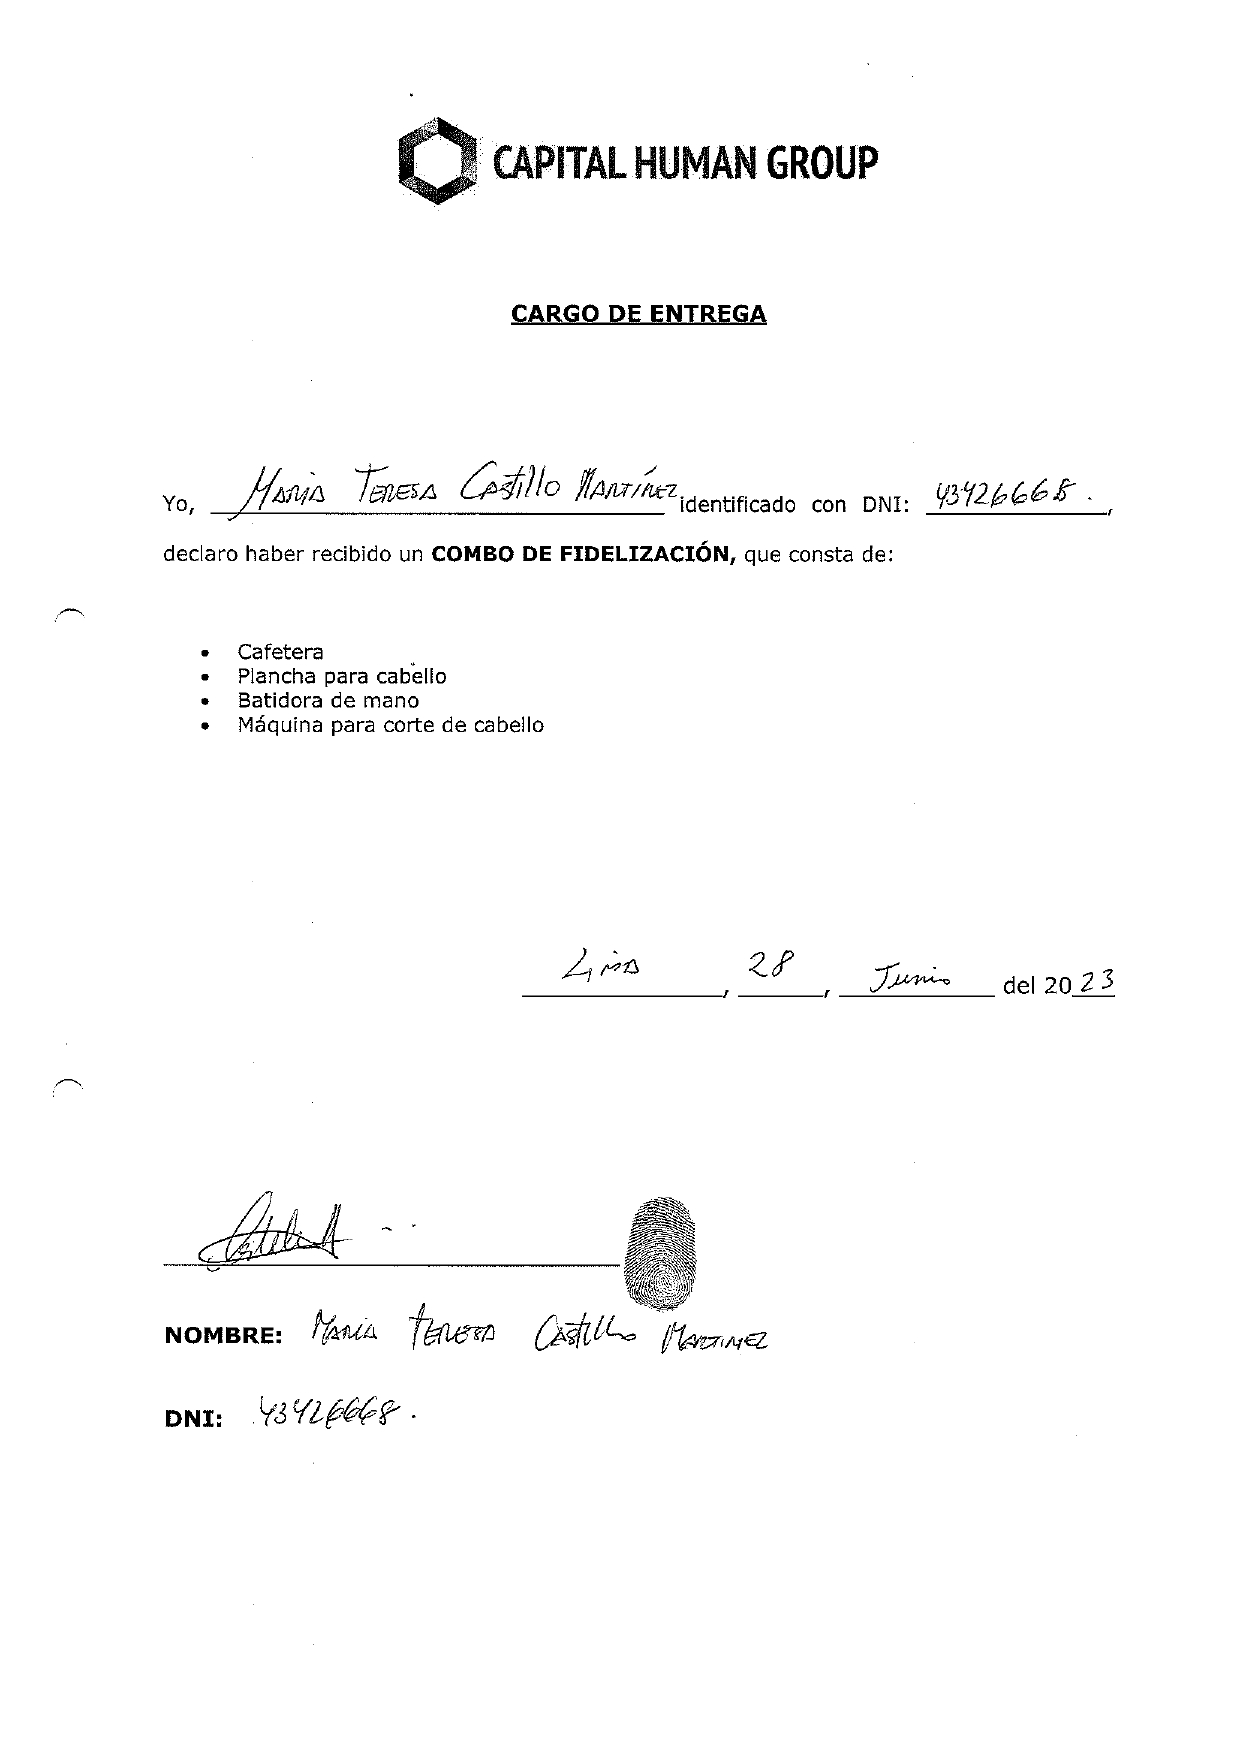 CAPITAL HUMAN GROUP
CARGO DE ENTREGA
Yo, Maria Teresa Castillo Martínez identificado con DNI: 43426668.,
declaro haber recibido un COMBO DE FIDELIZACIÓN, que consta de:
• Cafetera
• Plancha para cabello
• Batidora de mano
• Máquina para corte de cabello
Lima, 28, Junio del 2023
NOMBRE: Maria Teresa Castillo Martinez
DNI: 43426668.